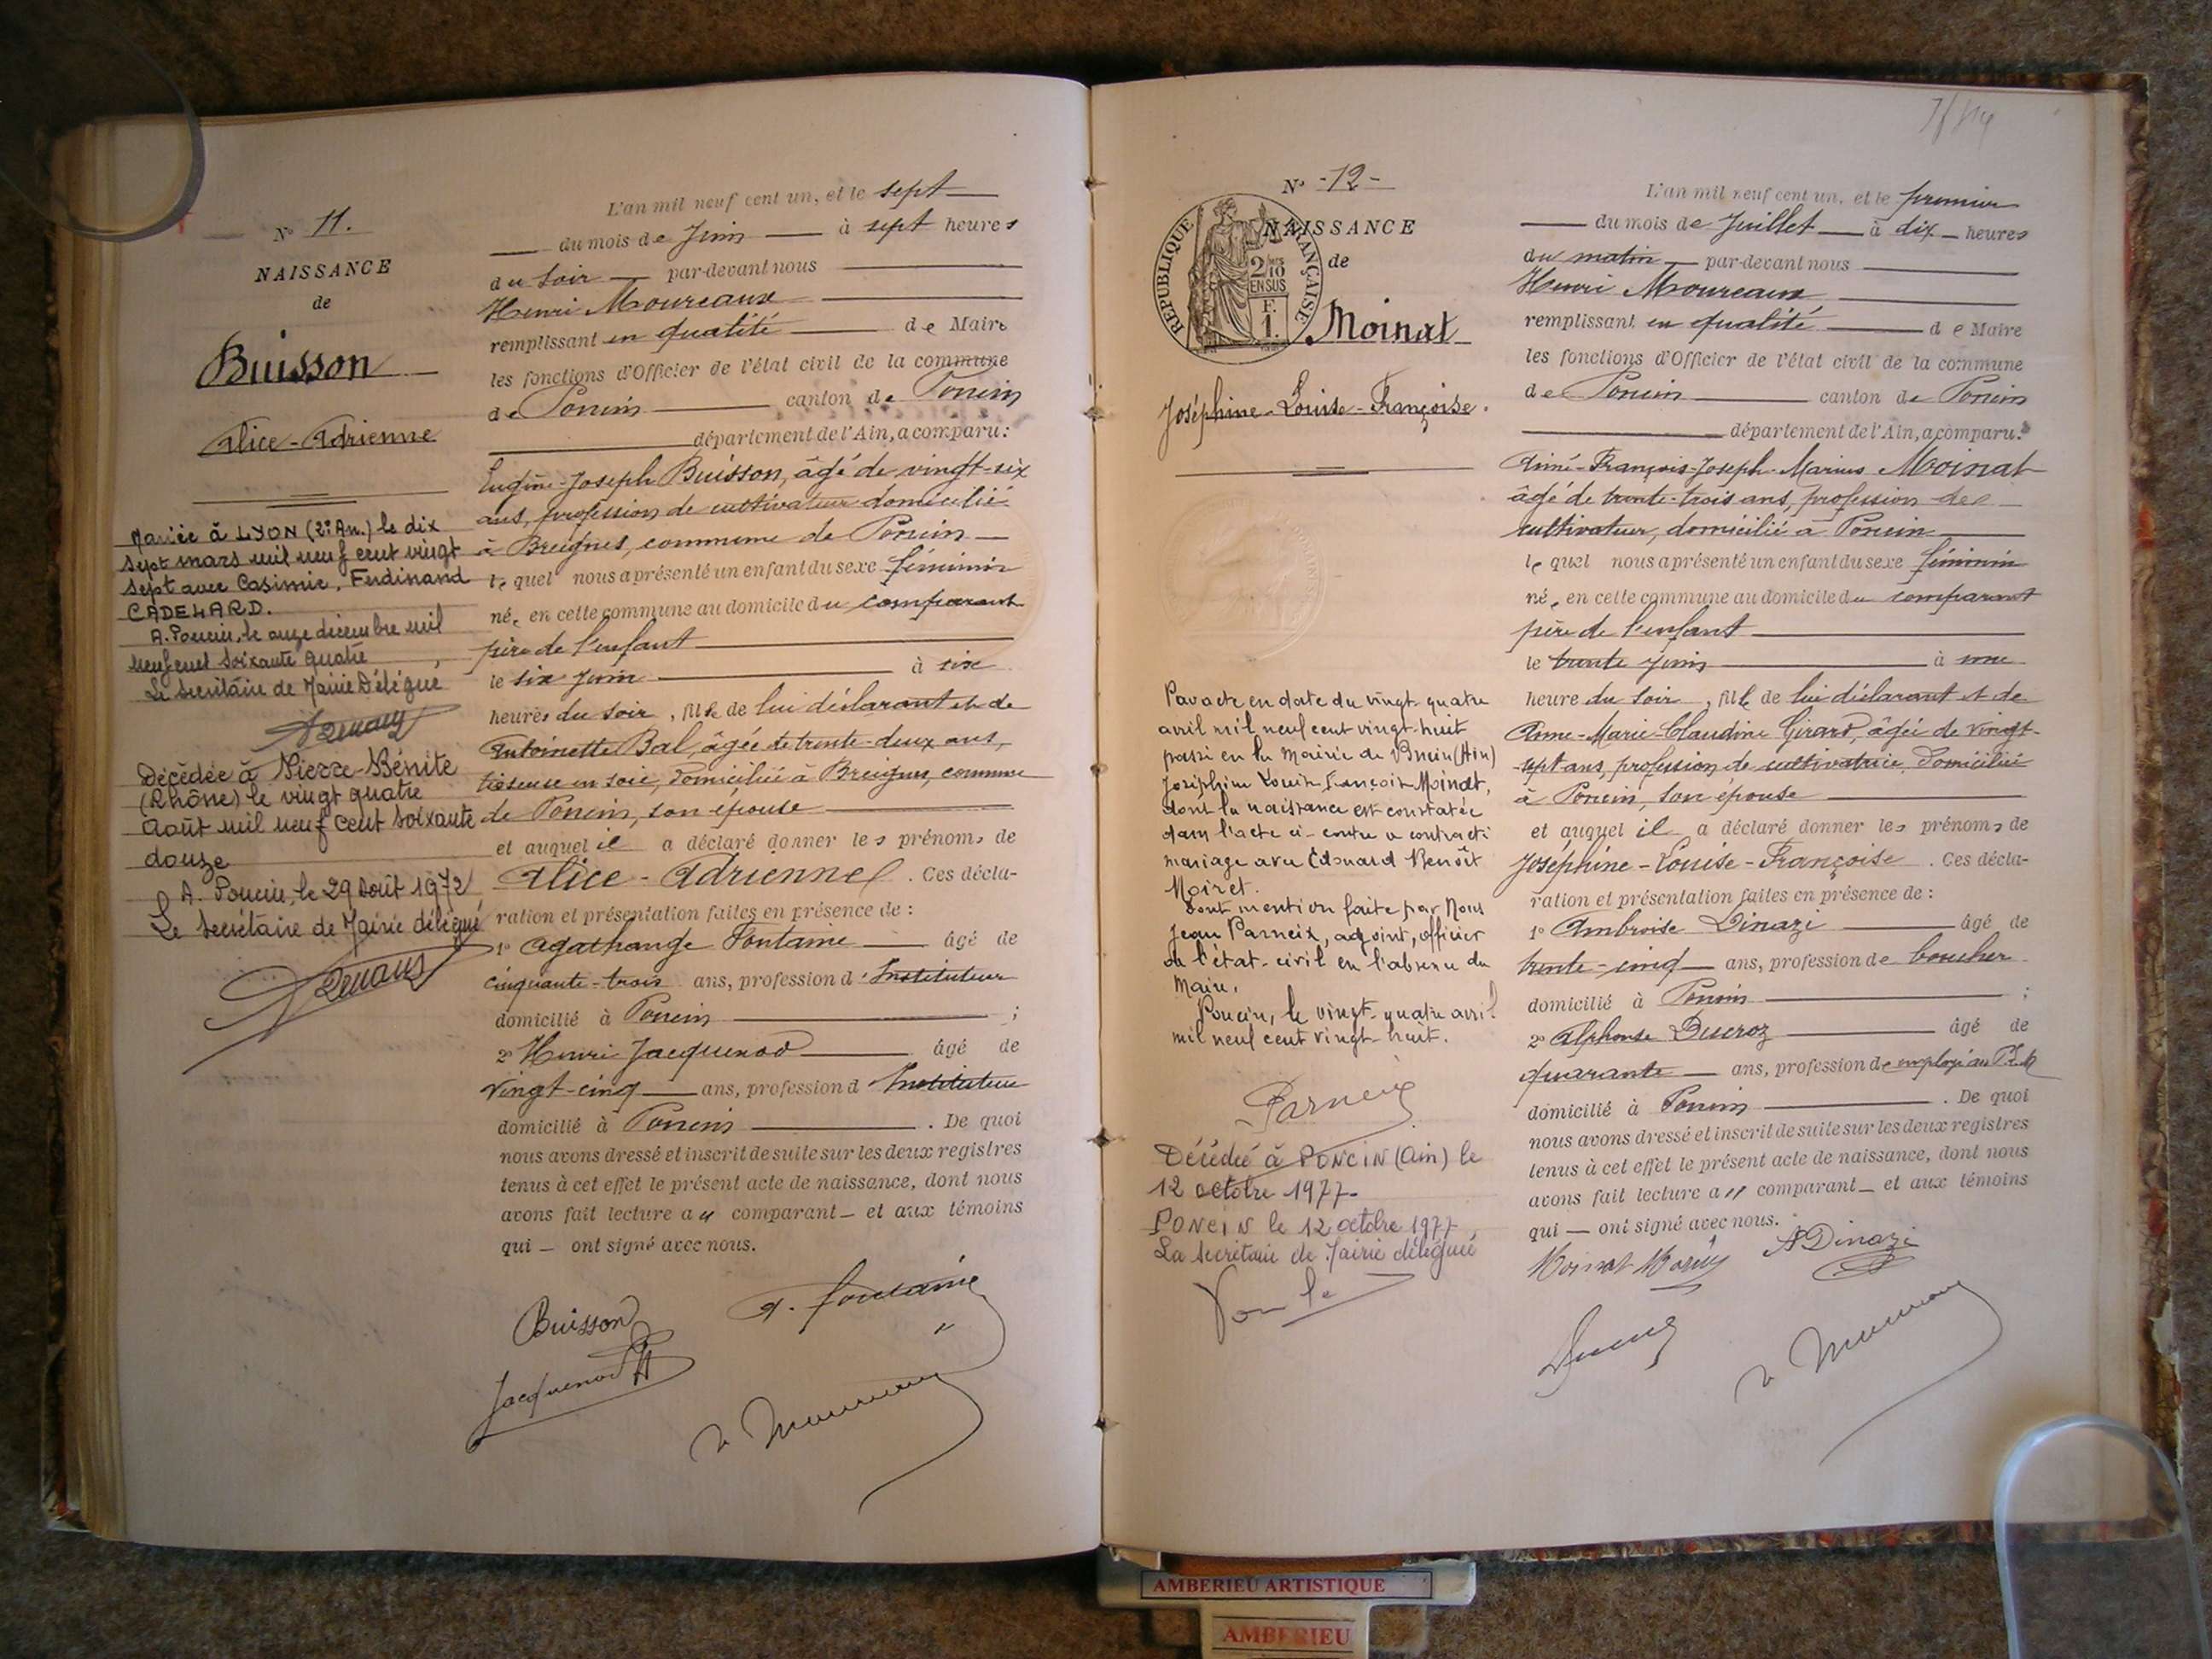 N° 11.
NAISSANCE
de
Buisson
Alice-Adrienne
Mariée à LYON (2e Arr.) le dix
sept mars mil neuf cent vingt
sept avec Casimir, Ferdinand
CADELARD.
A. Poncin, le onze décembre mil
neuf cent soixante quatre
Le Secrétaire de Mairie Délégué
Décédée à Pierre-Bénite
(Rhône) le vingt quatre
Août mil neuf cent soixante
douze
A. Poncin, le 29 Août 1972
Le Secrétaire de Mairie délégué
L'an mil neuf cent un, et le sept
du mois de Juin à sept heures
du soir par-devant nous
Henri Moureaux
remplissant en qualité de Maire
les fonctions d'Officier de l'état civil de la commune
de Poncin canton de Poncin
département de l'Ain, a comparu:
Eugène-Joseph Buisson, âgé de vingt-six
ans, profession de cultivateur domicilié
à Breignes, commune de Poncin
lequel nous a présenté un enfant du sexe féminin
née en cette commune au domicile du comparant
père de l'enfant
le six juin à six
heures du soir, fille de lui déclarant et de
Antoinette Bal, âgée de trente-deux ans,
tisseuse en soie, domiciliée à Breignes, commune
de Poncin, son épouse
et auquel il a déclaré donner les prénoms de
Alice-Adrienne. Ces décla-
ration et présentation faites en présence de :
1° Agathange Fontaine âgé de
cinquante-trois ans, profession d'Instituteur
domicilié à Poncin ;
2° Henri Jacquenod âgé de
vingt-cinq ans, profession d'Instituteur
domicilié à Poncin. De quoi
nous avons dressé et inscrit de suite sur les deux registres
tenus à cet effet le présent acte de naissance, dont nous
avons fait lecture au comparant et aux témoins
qui ont signé avec nous.
Buisson
A. Fontaine
Jacquenod H
N° -12-
NAISSANCE
de
RÉPUBLIQUE FRANÇAISE
2/10
EN SUS
F.
1.
Moinat
Joséphine-Louise-Françoise.
Par acte en date du vingt-quatre
avril mil neuf cent vingt-huit
passé en la Mairie de Poncin (Ain)
Joséphine Louise Françoise Moinat,
dont la naissance est constatée
dans l'acte ci-contre a contracté
mariage avec Edouard Benoît
Moiret.
Dont mention faite par Nous
Jean Parneix, adjoint, officier
de l'état-civil en l'absence du
Maire.
Poncin, le vingt-quatre avril
mil neuf cent vingt-huit.
Parneix
Décédée à PONCIN (Ain) le
12 octobre 1977.
PONCIN le 12 octobre 1977
La secrétaire de Mairie déléguée
L'an mil neuf cent un, et le premier
du mois de Juillet à dix heures
du matin par-devant nous
Henri Moureaux
remplissant en qualité de Maire
les fonctions d'Officier de l'état civil de la commune
de Poncin canton de Poncin
département de l'Ain, a comparu:
Aimé-François-Joseph-Marius Moinat
âgé de trente-trois ans, profession de
cultivateur, domicilié à Poncin
lequel nous a présenté un enfant du sexe féminin
née en cette commune au domicile du comparant
père de l'enfant
le trente juin à une
heure du soir, fille de lui déclarant et de
Anne-Marie-Claudine Girard, âgée de vingt-
sept ans, profession de cultivatrice, domiciliée
à Poncin, son épouse
et auquel il a déclaré donner les prénoms de
Joséphine-Louise-Françoise. Ces décla-
ration et présentation faites en présence de :
1° Ambroise Dinazi âgé de
trente-cinq ans, profession de boucher
domicilié à Poncin ;
2° Alphonse Ducroz âgé de
quarante ans, profession de employé au
domicilié à Poncin. De quoi
nous avons dressé et inscrit de suite sur les deux registres
tenus à cet effet le présent acte de naissance, dont nous
avons fait lecture au comparant et aux témoins
qui ont signé avec nous.
Moinat Marius
A Dinazi
AMBERIEU ARTISTIQUE
AMBERIEU